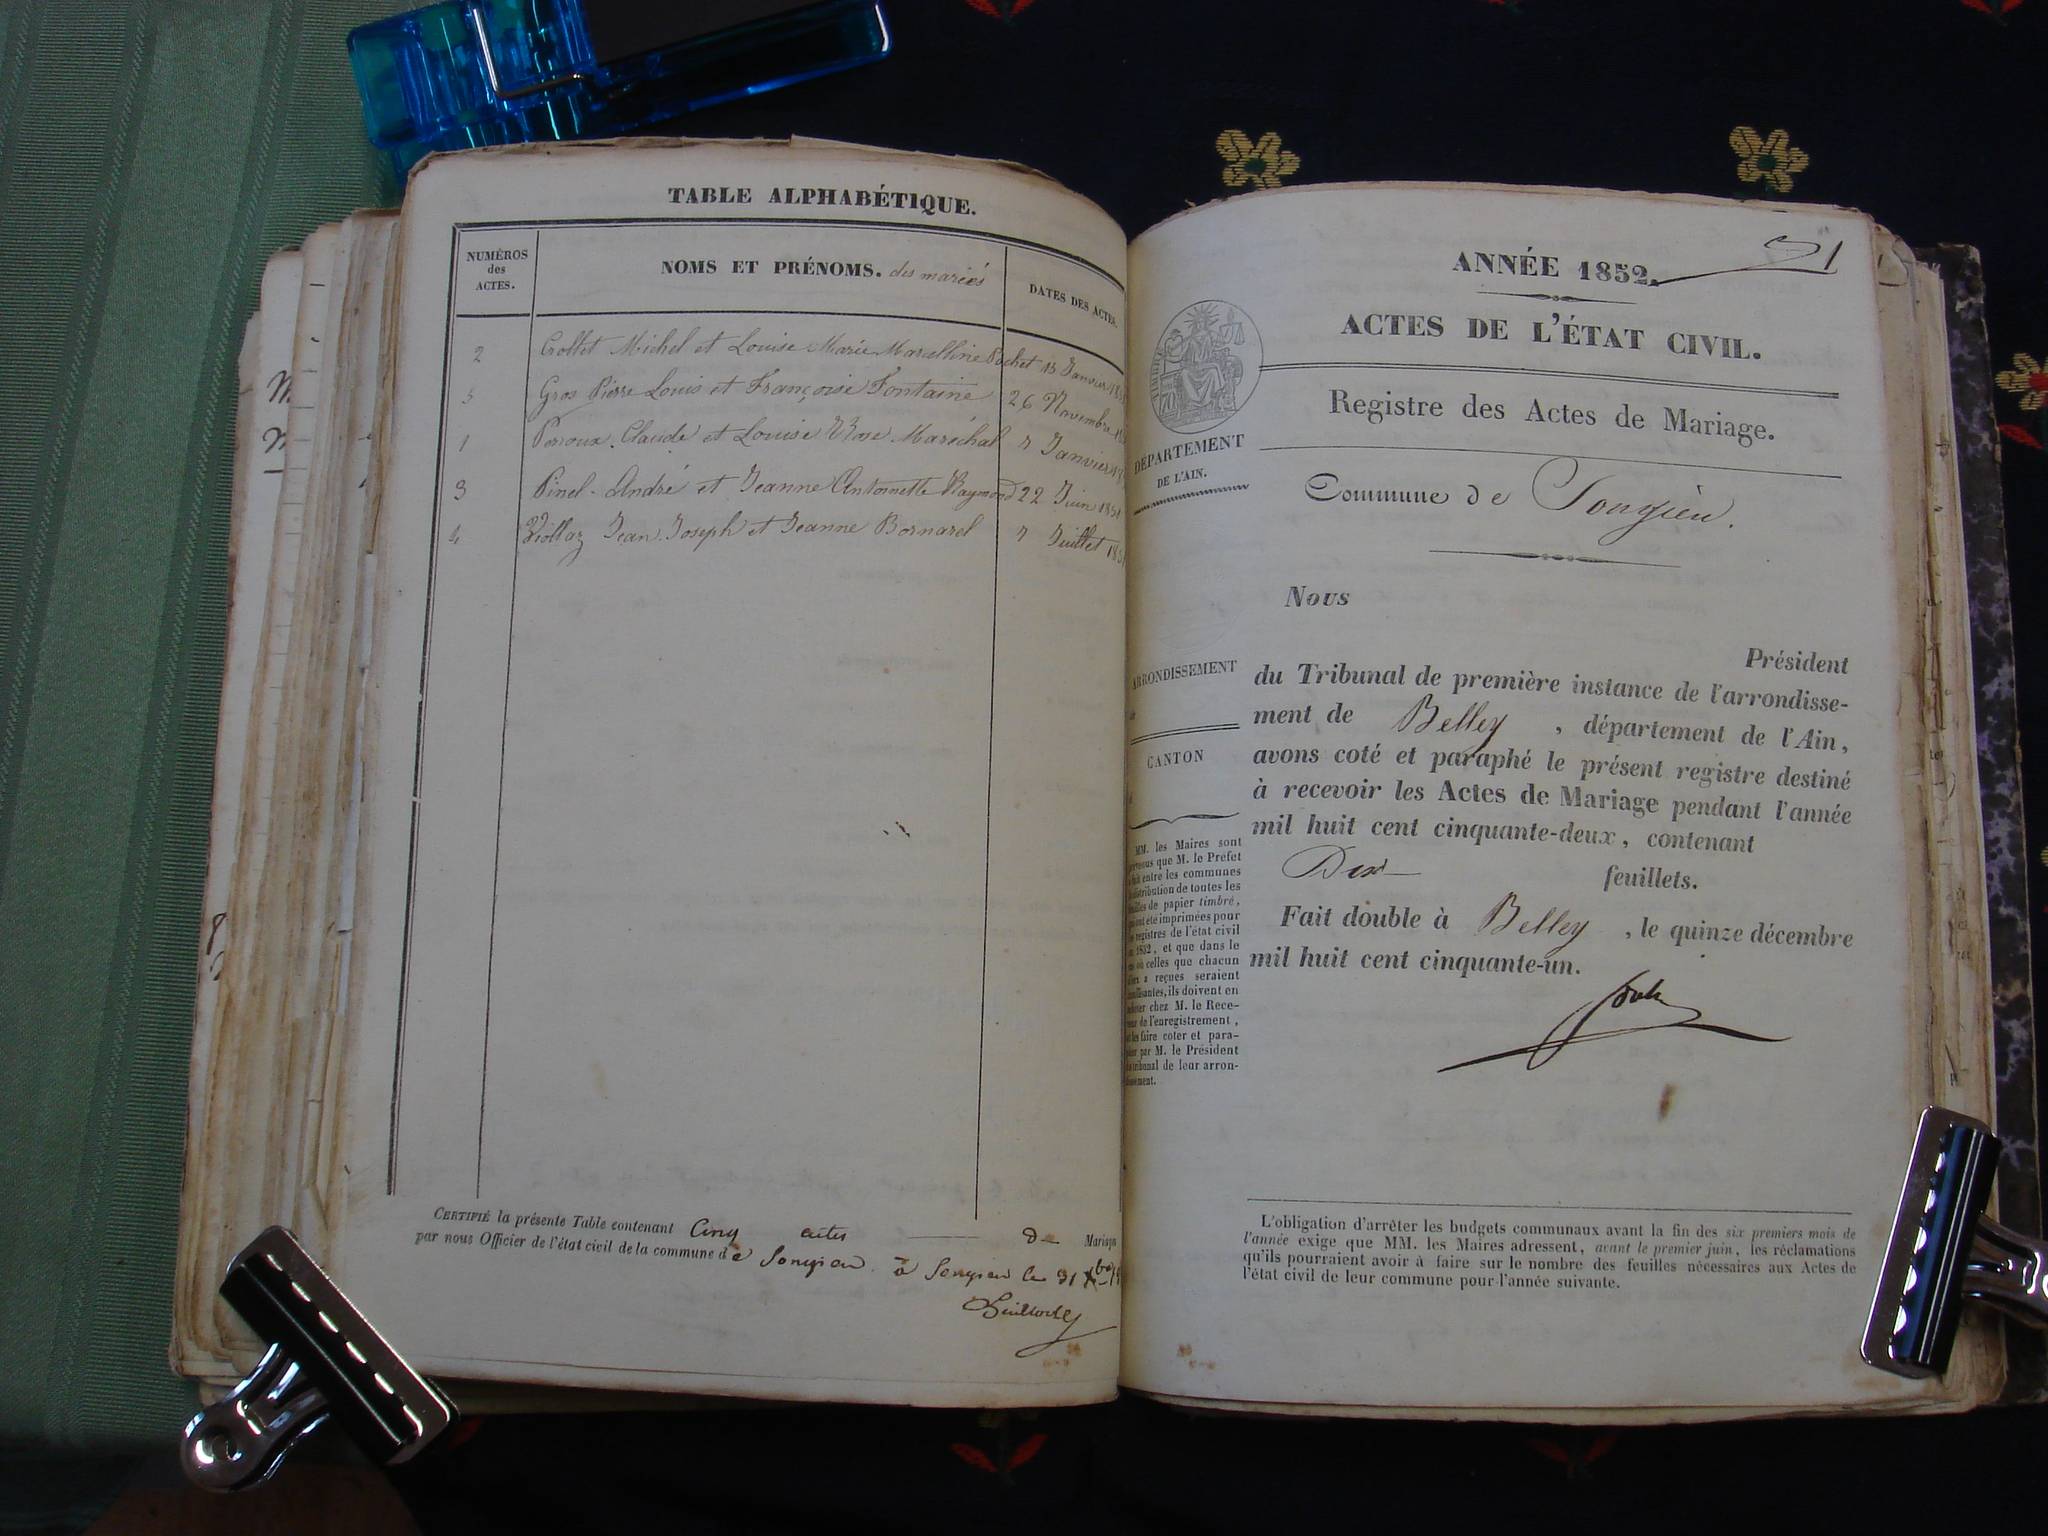 TABLE ALPHABÉTIQUE.
NUMÉROS
des
ACTES.
NOMS ET PRÉNOMS. des mariés
DATES DES ACTES.
2 Crollet Michel et Louise Marie Marcelline Pochet 13 Janvier
5 Gros Pierre Louis et Françoise Fontaine 26 Novembre
1 Perroux Claude et Louise Rose Maréchal 7 Janvier
3 Pinel André et Jeanne Antoinette Raymond 22 Juin 1851
4 Viollaz Jean Joseph et Jeanne Bornarel 7 Juillet
CERTIFIÉ la présente Table contenant Cinq actes de Mariage
par nous Officier de l'état civil de la commune de Songieu à Songieu le 31 Xbre
ANNÉE 1852.
1
ACTES DE L'ÉTAT CIVIL.
Registre des Actes de Mariage.
Commune de Songieu.
TIMBRE
DÉPARTEMENT
DE L'AIN.
ARRONDISSEMENT
CANTON
MM. les Maires sont
prévenus que M. le Préfet
fait entre les communes
distribution de toutes les
feuilles de papier timbré,
ont été imprimées pour
registres de l'état civil
1852, et que dans le
où celles que chacun
a reçues seraient
insuffisantes, ils doivent en
chez M. le Rece-
de l'enregistrement,
les faire coter et para-
par M. le Président
tribunal de leur arron-
dissement.
Nous
Président
du Tribunal de première instance de l'arrondisse-
ment de Belley, département de l'Ain,
avons coté et paraphé le présent registre destiné
à recevoir les Actes de Mariage pendant l'année
mil huit cent cinquante-deux, contenant
Dix feuillets.
Fait double à Belley, le quinze décembre
mil huit cent cinquante-un.
L'obligation d'arrêter les budgets communaux avant la fin des six premiers mois de
l'année exige que MM. les Maires adressent, avant le premier juin, les réclamations
qu'ils pourraient avoir à faire sur le nombre des feuilles nécessaires aux Actes de
l'état civil de leur commune pour l'année suivante.